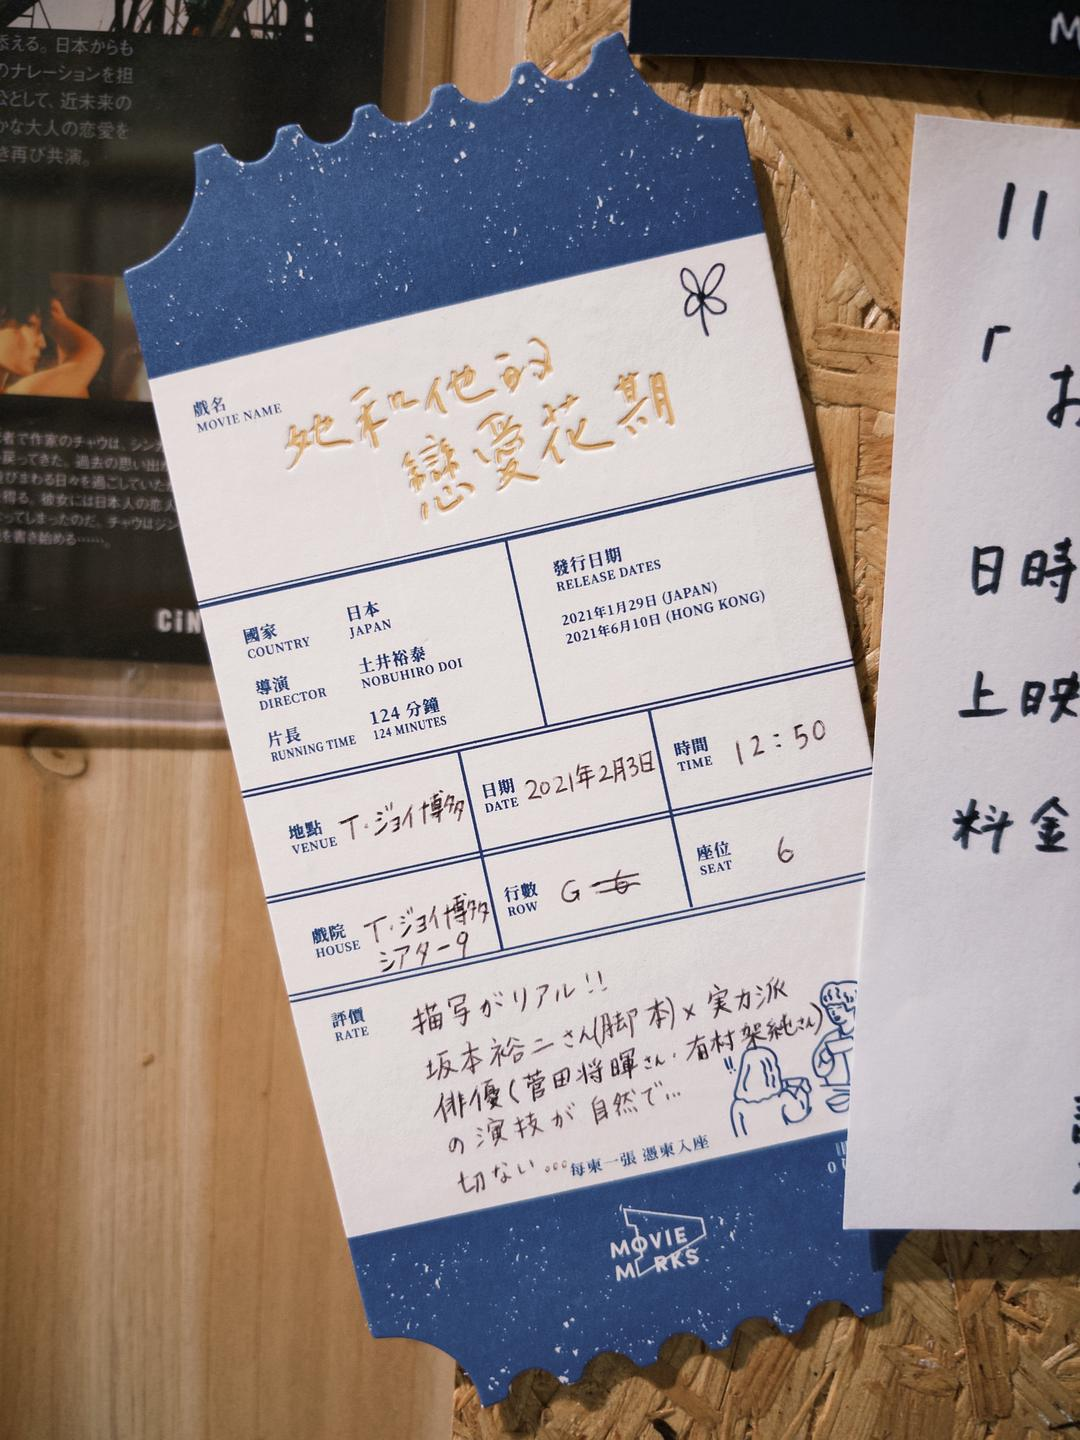 添える。日本からも
のナレーションを担
公として、近未来の
かな大人の恋愛を
き再び共演。
者で作家のチャウは、シン
戻ってきた。過去の思い出
びまわる日々を過ごしていた
得る。彼女には日本人の恋人
なってしまったのだ。チャウはシン
を書き始める……。
CiN
戲名
MOVIE NAME
她和他的
戀愛花期
國家
COUNTRY
日本
JAPAN
導演
DIRECTOR
土井裕泰
NOBUHIRO DOI
片長
RUNNING TIME
124 分鐘
124 MINUTES
發行日期
RELEASE DATES
2021年1月29日 (JAPAN)
2021年6月10日 (HONG KONG)
地點
VENUE
T・ジョイ博多
日期
DATE
2021年2月3日
時間
TIME
12:50
戲院
HOUSE
T・ジョイ博多
シアター9
行數
ROW
G
座位
SEAT
6
評價
RATE
描写がリアル!!
坂本裕二さん(脚本)×実力派
俳優(菅田将暉さん・有村架純さん)
の演技が自然で…
切ない…
每東一張 憑東入座
MOVIE
MARKS
11
「
お
日時
上映
料金